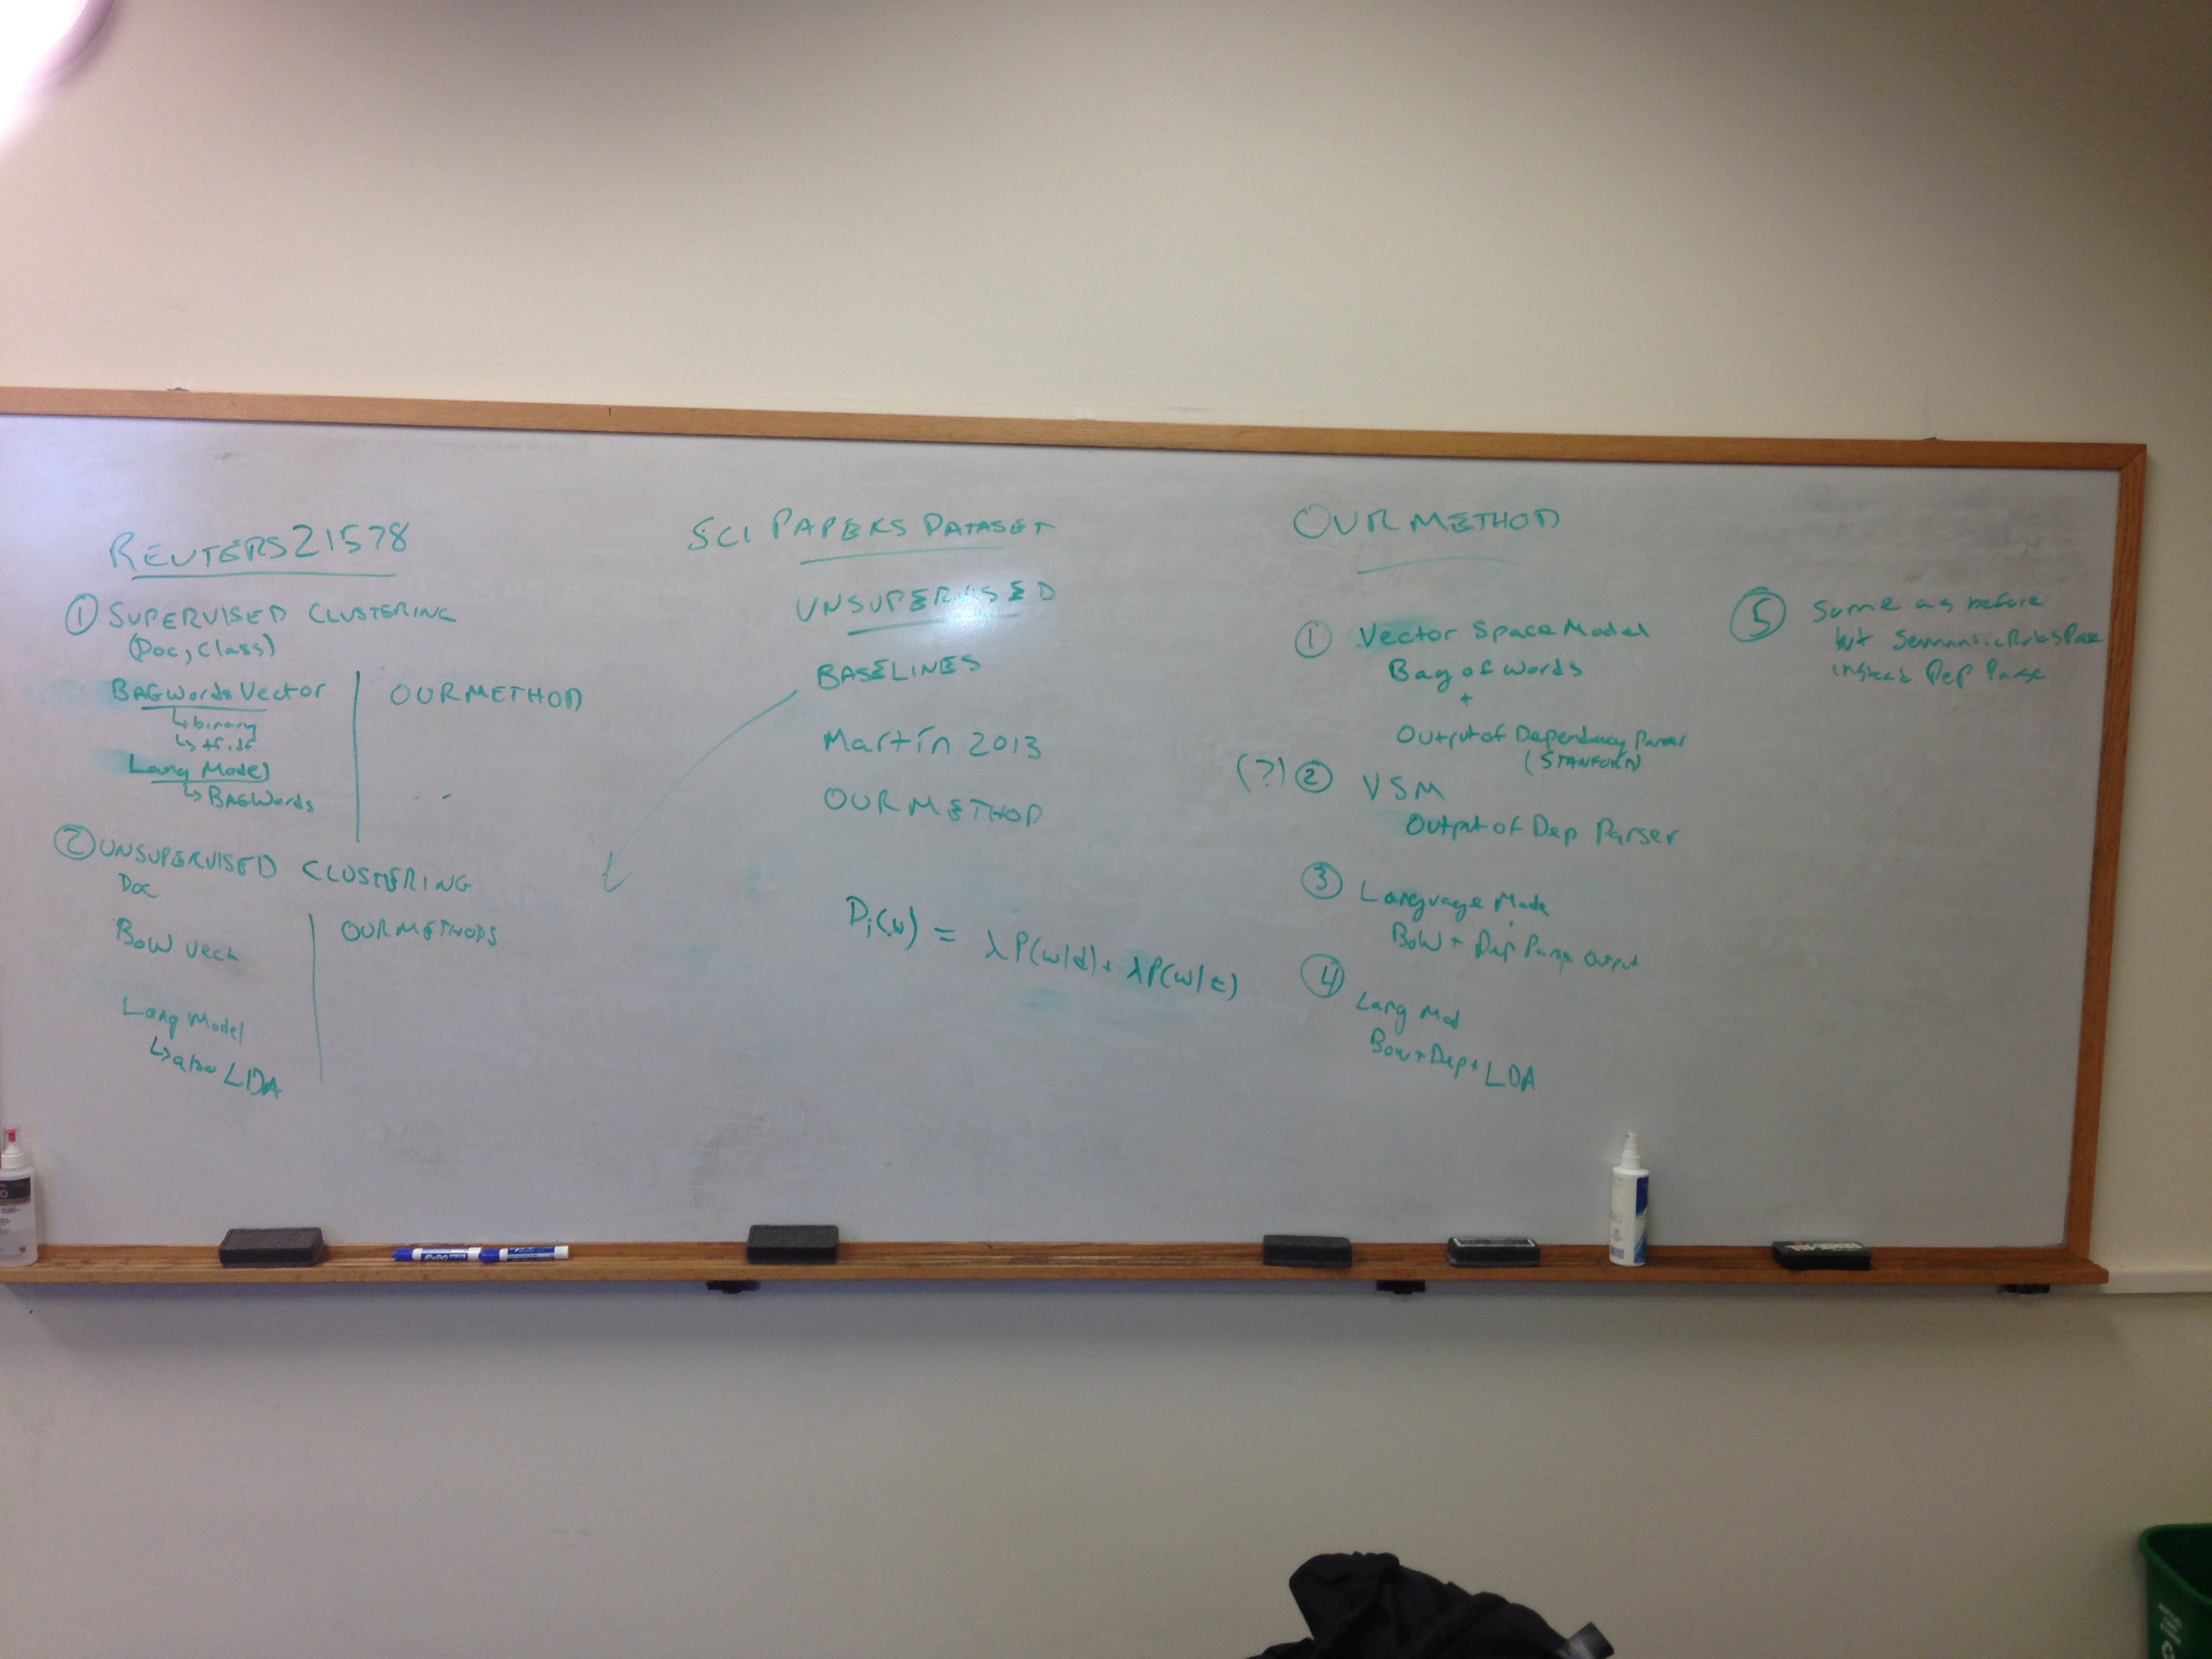 REUTERS21578
① SUPERVISED CLUSTERING
(Doc, Class)
BAGWords Vector
↳ binary
↳ tf.idf
Lang Model
↳ BAGWords
OUR METHOD
② UNSUPERVISED CLUSTERING
Doc
BOW vect
Lang Model
↳ also LDA
OUR METHODS
SCI PAPERS DATASET
UNSUPERVISED
BASELINES
Martin 2013
OUR METHOD
Pi(w) = λP(w|d) + λP(w|t)
OUR METHOD
① Vector Space Model
Bag of words
+
Output of Dependency Parser
(STANFORD)
(?) ② VSM
Output of Dep Parser
③ Language Mode
BoW + Dep Parse Output
④ Lang Mod
Bow + Dep + LDA
⑤ Same as before
but Semantic Parse
instead Dep Parse